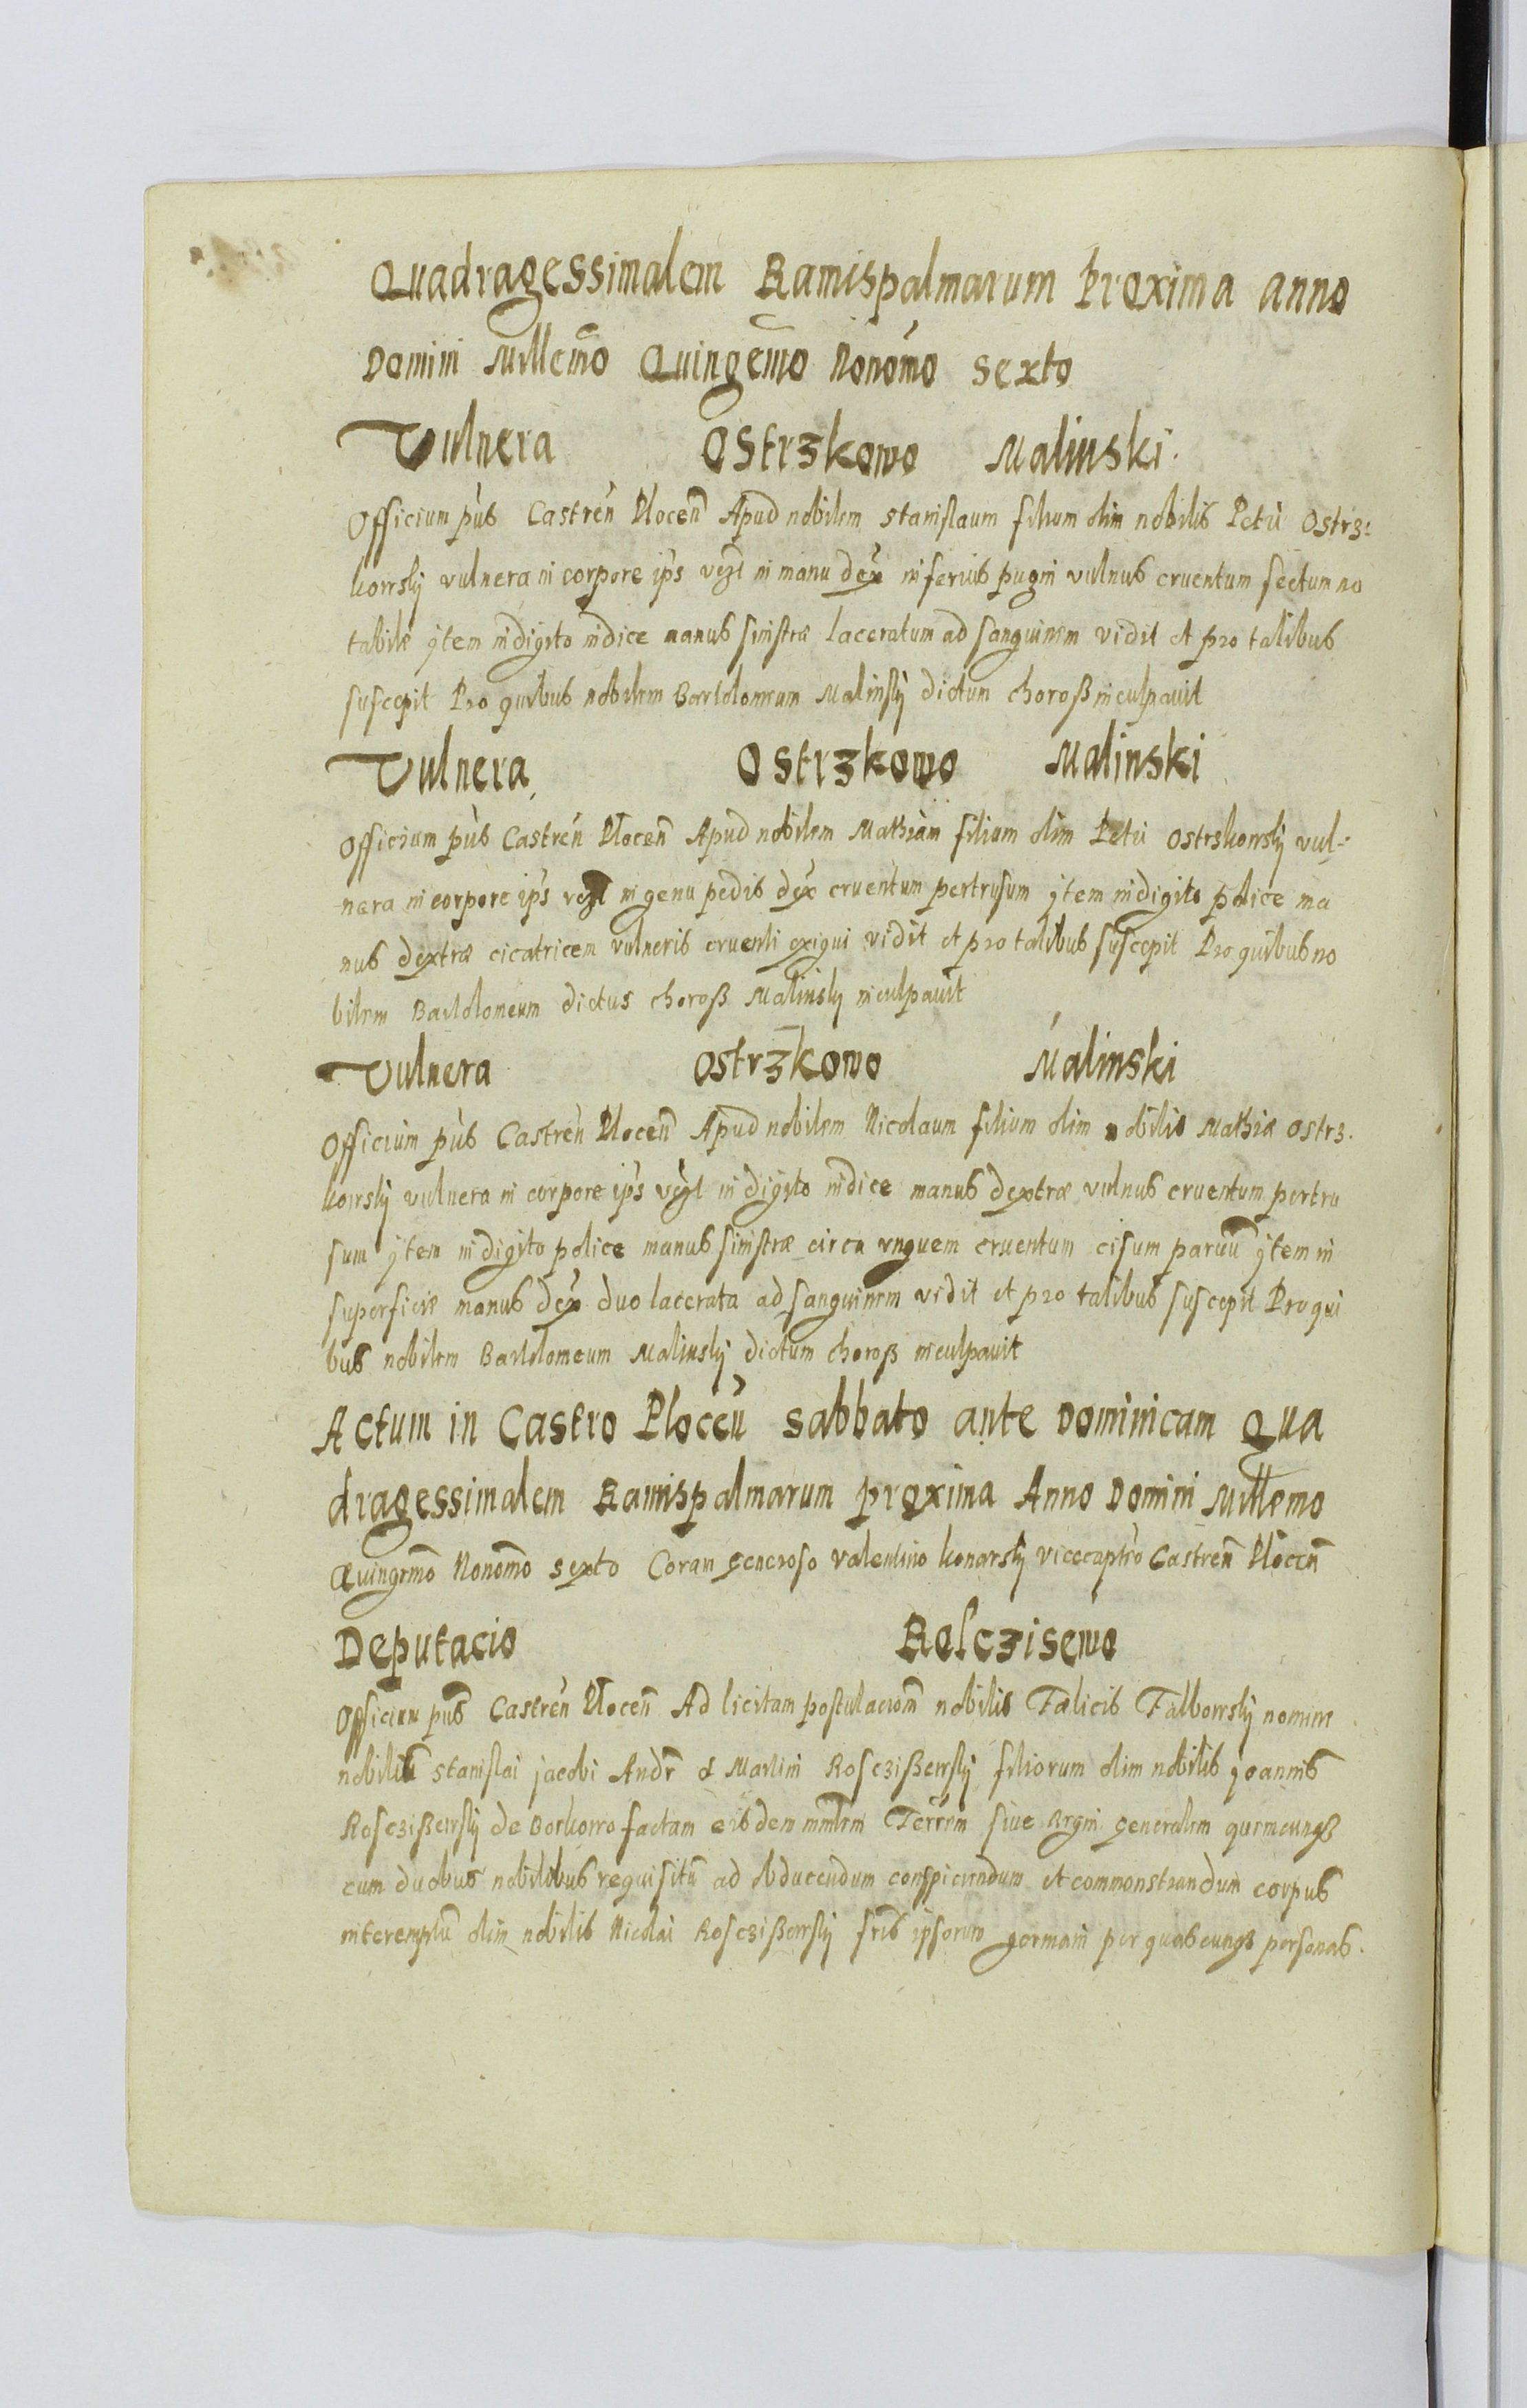 Quadragessimalem Ramispalmarum Proxima anno
Domini Millemo Quingemo Nonomo sexto
Vulnera Ostrzkowo Malinski
Officium pub Castren Plocen Apud nobilem Stanislaum filium olim nobilis Petri Ostrz:
kowsky vulnera in corpore ips vzl in manu dex inferius pugni vulnus cruentum sectum no
tabile ytem in digito indice manus sinistræ laceratum ad sanguinem vidit et pro talibus
suscepit Pro quibus nobilem Bartolomeum Malinsky dictum choroß inculpauit
Vulnera Ostrzkowo Malinski
Officium pub Castren Plocen Apud nobilem Mathiam filium olim Petri Ostrskowsky vul-
nera in corpore ips vzl in genu pedis dex cruentum pertrusum ytem in digito police ma
nus dextræ cicatricem vulneris cruenti exigui vidit et pro talibus suscepit Pro quibus no
bilem Bartolomeum dictus choroß Malinsky inculpauit
Vulnera Ostrzkowo Malinski
Officium pub Castren Plocen Apud nobilem Nicolaum filium olim nobilis Mathiæ Ostrz.
kowsky vulnera in corpore ips vzl in digito indice manus dextræ vulnus cruentum pertru
sum ytem in digito police manus sinistræ circa vnguem cruentum cisum paruu ytem in
superficie manus dex duo lacerata ad sanguinem vidit et pro talibus suscepit Pro qui
bus nobilem Bartolomeum Malinsky dictum choroß inculpauit
Actum in Castro Plocen sabbato ante Dominicam Qua
dragessimalem Ramispalmarum proxima Anno Domini Millemo
Quingemo Nonomo sexto Coram generoso Valentino konarsky vicecaptro Castren Plocen
Deputacio Rosczisewo
Officium pub Castren Plocen Ad licitam postulaciom nobilis Fælicis Falbowsky nomine
nobiliu Stanislai jacobi Andr & Martini Rosczißewsky filiorum olim nobilis yoannis
Rosczißewsky de Borkowo factam eisdem mnlrm Terrem siue Regni generalem quemcunqz
cum duobus nobilibus requisitu ad obducendum conspiciendum et commonstrandum corpus
interemptu olim nobilis Nicolai Rosczißewsky fris ipsorum germani per quascunqz personas.